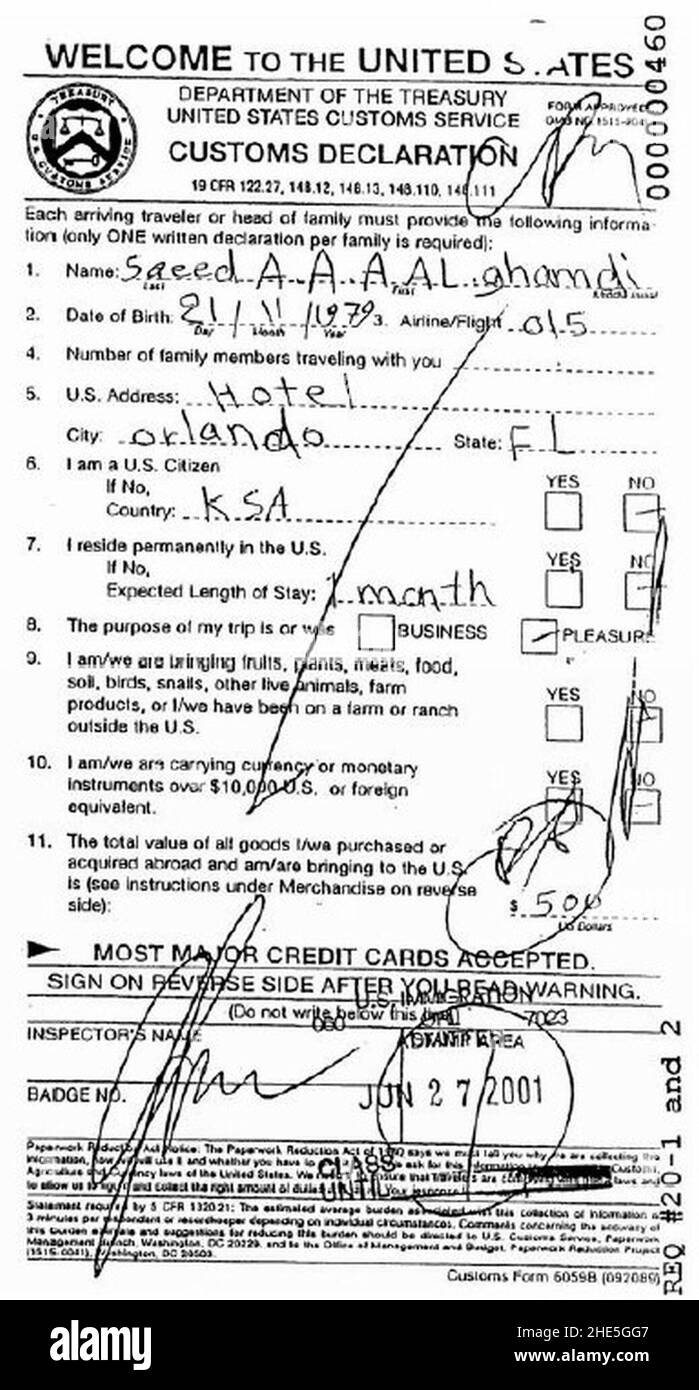 WELCOME TO THE UNITED S ATES
000000460
TREASURY
U.S. CUSTOMS SERVICE
DEPARTMENT OF THE TREASURY
UNITED STATES CUSTOMS SERVICE
FORM APPROVED
OMB NO. 1515-004
CUSTOMS DECLARATION
19 CFR 122.27, 148.12, 148.13, 148.110, 148.111
Each arriving traveler or head of family must provide the following informa-
tion (only ONE written declaration per family is required):
1. Name: Saeed A A A AL ghamdi
Last First Middle Initial
2. Date of Birth: 21 / 11 / 1979 3. Airline/Flight 015
Day Month Year
4. Number of family members traveling with you
5. U.S. Address: Hotel
City: orlando State: FL
6. I am a U.S. Citizen YES NO
If No,
Country: KSA
7. I reside permanently in the U.S. YES NO
If No,
Expected Length of Stay: 1 month
8. The purpose of my trip is or was BUSINESS PLEASURE
9. I am/we are bringing fruits, plants, meats, food,
soil, birds, snails, other live animals, farm YES NO
products, or I/we have been on a farm or ranch
outside the U.S.
10. I am/we are carrying currency or monetary YES NO
instruments over $10,000 U.S. or foreign
equivalent.
11. The total value of all goods I/we purchased or
acquired abroad and am/are bringing to the U.S.
is (see instructions under Merchandise on reverse
side): $ 500
US Dollars
MOST MAJOR CREDIT CARDS ACCEPTED.
SIGN ON REVERSE SIDE AFTER YOU READ WARNING.
U.S. IMMIGRATION
(Do not write below this line) 7023
INSPECTOR'S NAME STAMP AREA
ADMITTED
BADGE NO. JUN 27 2001
CLASS
UNTIL
Paperwork Reduction Act Notice: The Paperwork Reduction Act of 1980 says we must tell you why we are collecting this
information, how we will use it and whether you have to ask for this information Customs,
Agriculture and Currency laws of the United States. We ensure that travelers are complying with these laws and
to allow us to figure and collect the right amount of duties Your response
Statement required by 5 CFR 1320.21: The estimated average burden associated with this collection of information is
3 minutes per respondent or recordkeeper depending on individual circumstances. Comments concerning the accuracy of
this burden estimate and suggestions for reducing this burden should be directed to U.S. Customs Service, Paperwork
Management Branch, Washington, DC 20229, and to the Office of Management and Budget, Paperwork Reduction Project
(1515-0041), Washington, DC 20503.
Customs Form 6059B (092089)
REQ #20-1 and 2
alamy
Image ID: 2HE5GG7
www.alamy.com